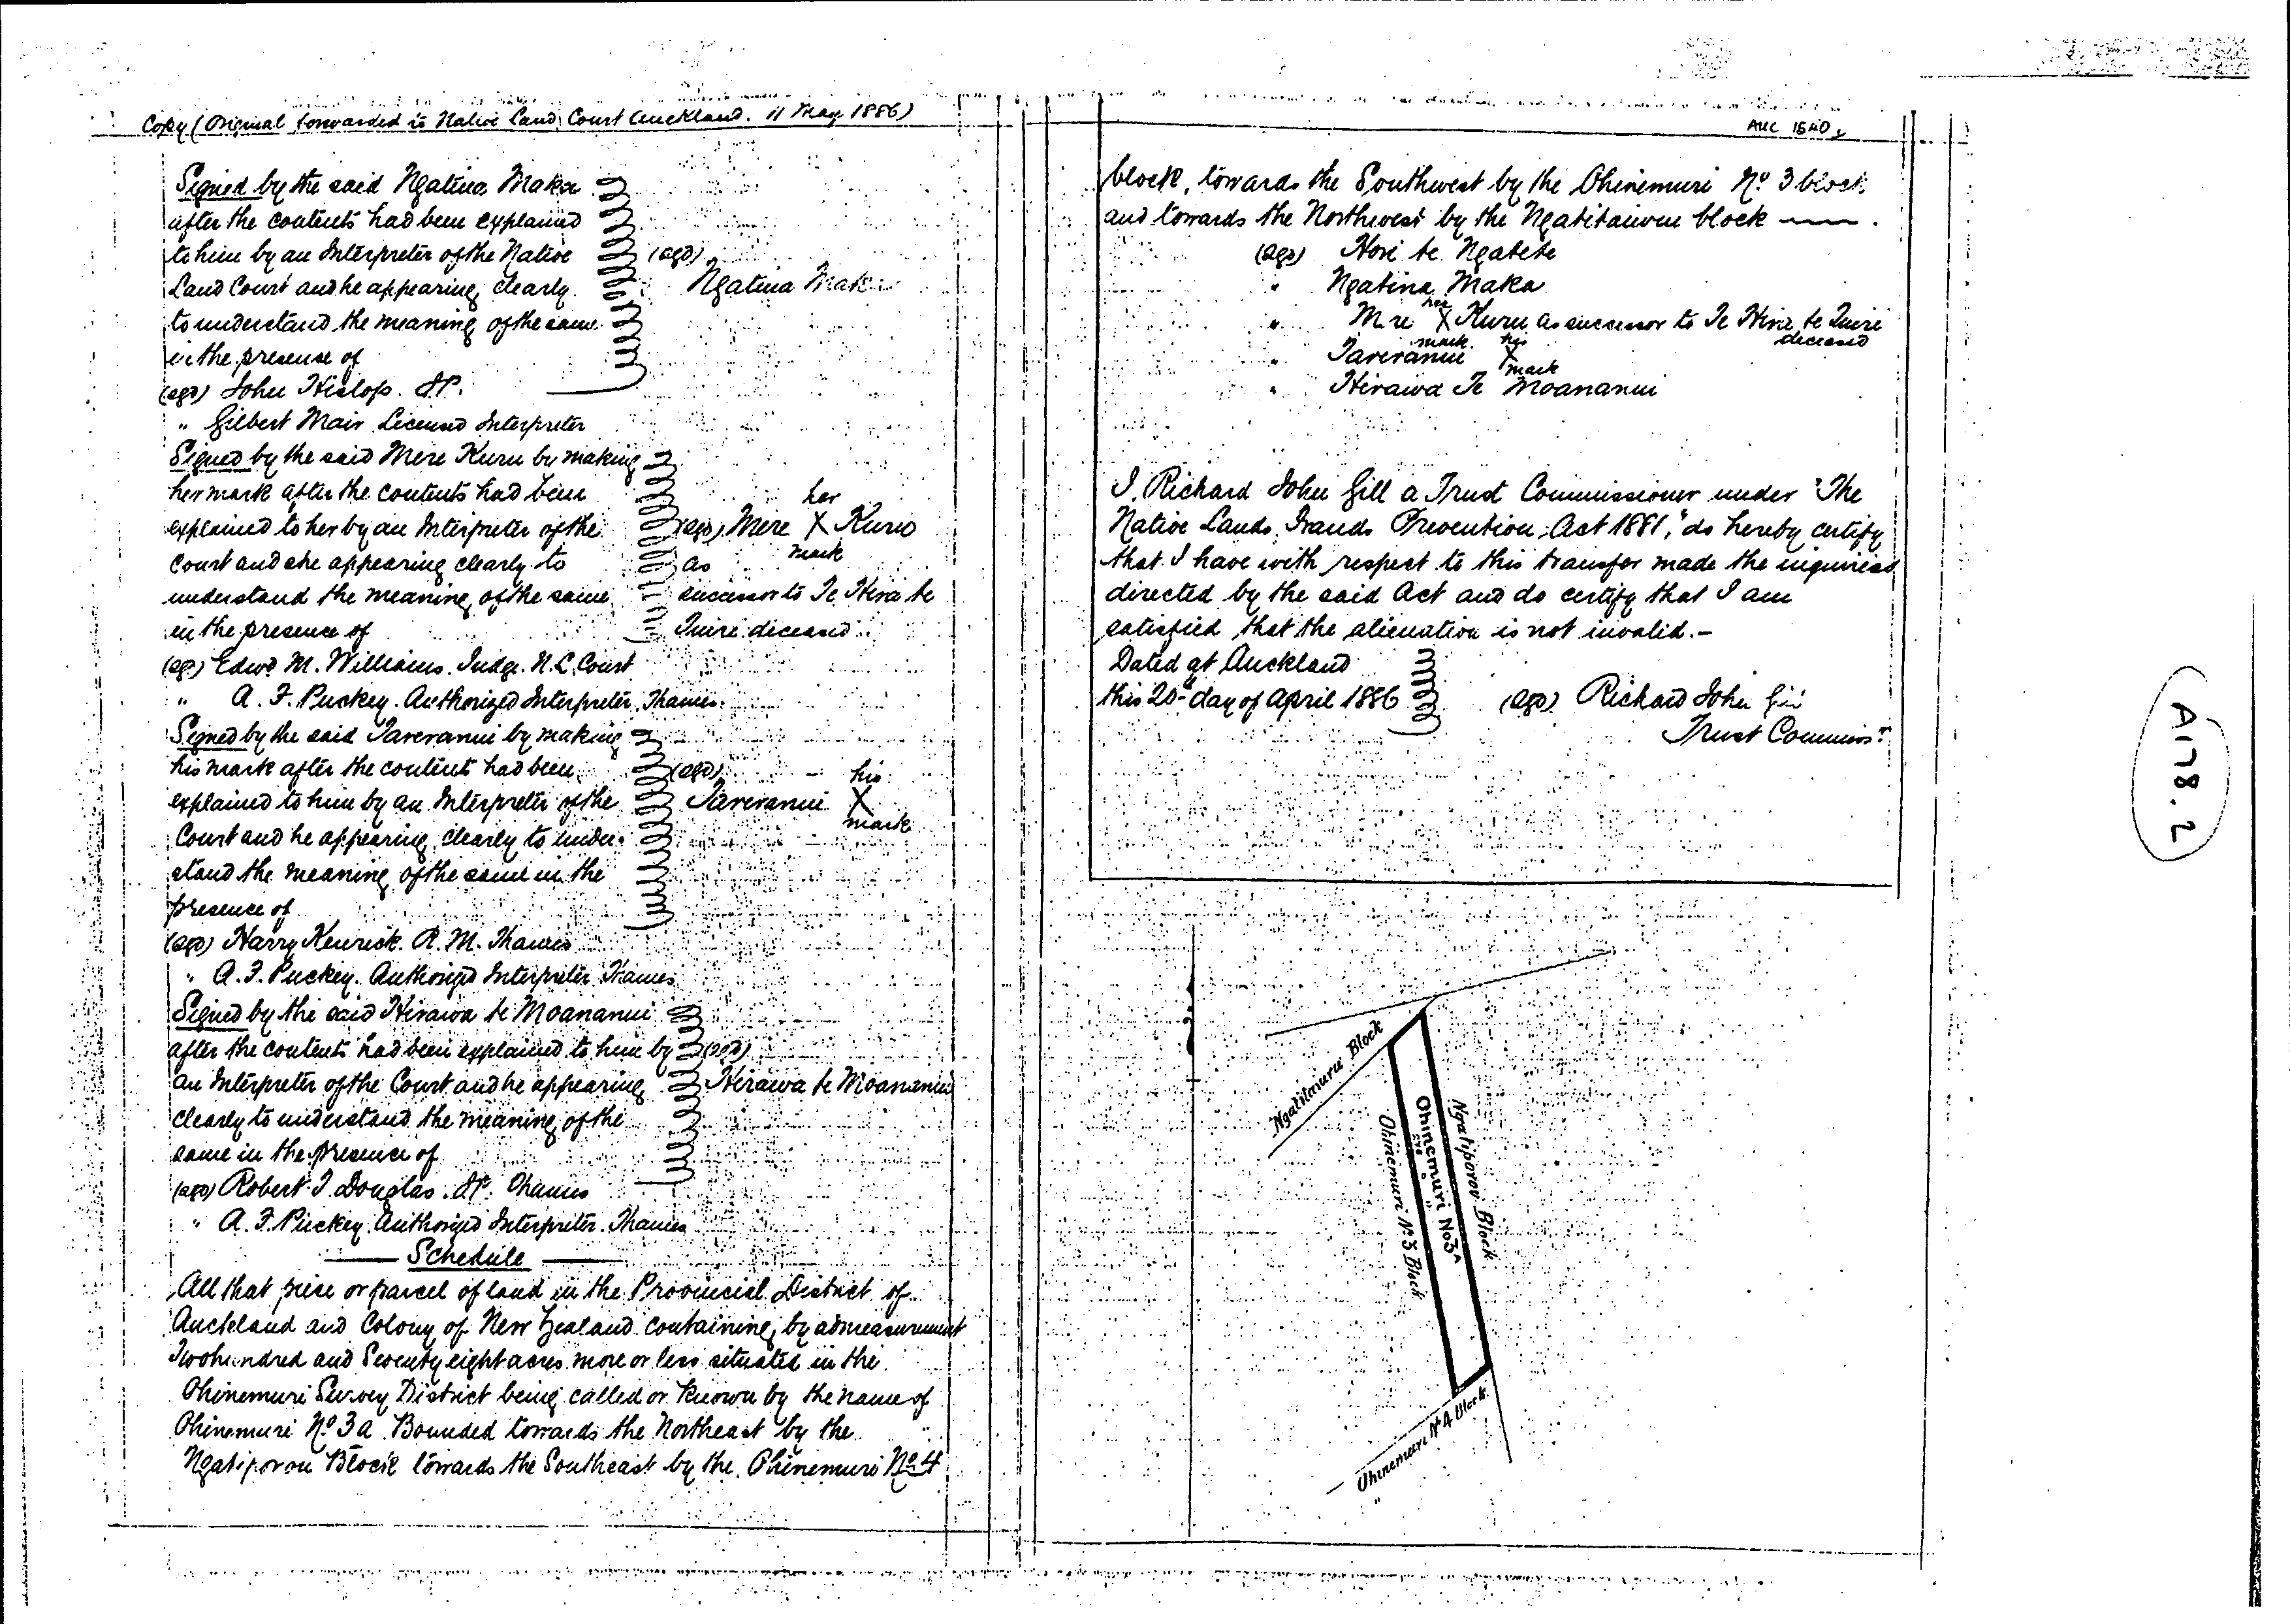 Copy (Original forwarded to Native Land Court Auckland. 11 May 1886)
Signed by the said Ngatina Maka
after the contents had been explained
to him by an Interpreter of the Native
Land Court and he appearing clearly
to understand the meaning of the same
in the presense of
(sgd) John Hislop. J.P.
" Gilbert Mair Licensed Interpreter
(sgd)
Ngatina Maka
Signed by the said Mere Kuru by making
her mark after the contents had been
explained to her by an Interpreter of the
Court and she appearing clearly to
understand the meaning of the same
in the presence of
(sgd) Edwd. M. Williams. Judge. N.L. Court
" A. F. Puckey. Authorized Interpreter, Thames.
her
(sgd) Mere X Kuru
mark
as
successor to Te Hira te
Tuiri deceased
Signed by the said Tareranui by making
his mark after the contents had been
explained to him by an Interpreter of the
Court and he appearing clearly to under-
stand the meaning of the same in the
presence of
(sgd) Harry Kenrick. R. M. Thames
" A. F. Puckey. Authorized Interpreter Thames
(sgd) his
Tareranui X
mark
Signed by the said Hirawa te Moananui
after the contents had been explained to him by
an Interpreter of the Court and he appearing
clearly to understand the meaning of the
same in the presence of
(sgd) Robert J. Douglas. J.P. Thames
" A. F. Puckey. Authorized Interpreter. Thames
(sgd)
Hirawa te Moananui
Schedule
All that piece or parcel of land in the Provincial District of
Auckland and Colony of New Zealand containing by admeasurement
Two hundred and Seventy eight acres more or less situated in the
Ohinemuri Survey District being called or known by the name of
Ohinemuri No. 3a Bounded towards the Northeast by the
Ngatiporou Block towards the Southeast by the Ohinemuri No. 4
AUC 1540
block, towards the Southwest by the Ohinemuri No. 3 block
and towards the Northwest by the Ngatitauru block
(sgd) Hori te Ngatete
" Ngatina Maka
her
" Mere X Kuru as successor to Te Hira te Tuiri
mark deceased
his
" Tareranui X
mark
" Hirawa Te Moananui
I, Richard John Gill a Trust Commissioner under "The
Native Lands Frauds Prevention Act 1881," do hereby certify
that I have with respect to this transfer made the inquiries
directed by the said Act and do certify that I am
satisfied that the alienation is not invalid.—
Dated at Auckland
this 20th day of April 1886
(sgd) Richard John Gill
Trust Commisr.
Ngatitauru Block
Ngatiporou Block
Ohinemuri No3A
Ohinemuri No 3 Block
Ohinemuri No 4 Block
A178.2